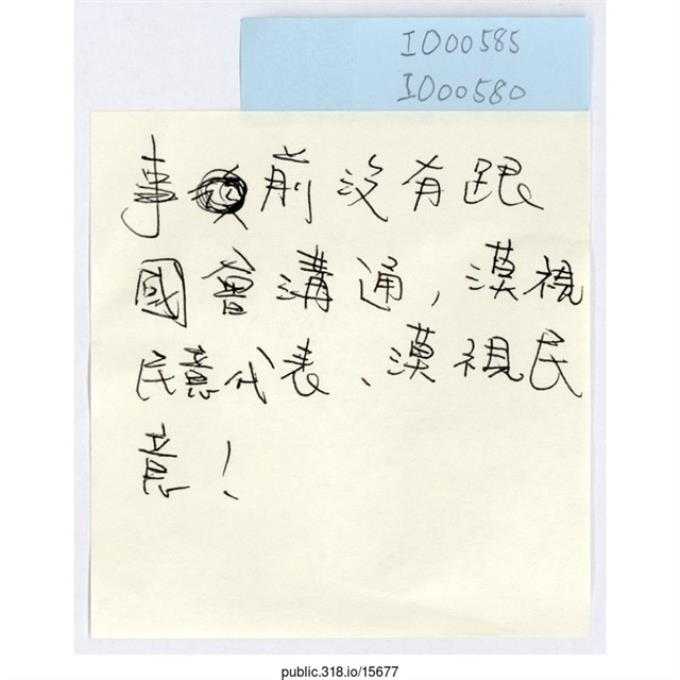 I000585
I000580
事前沒有跟
國會溝通,漠視
民意代表、漠視民
意!
public.318.io/15677